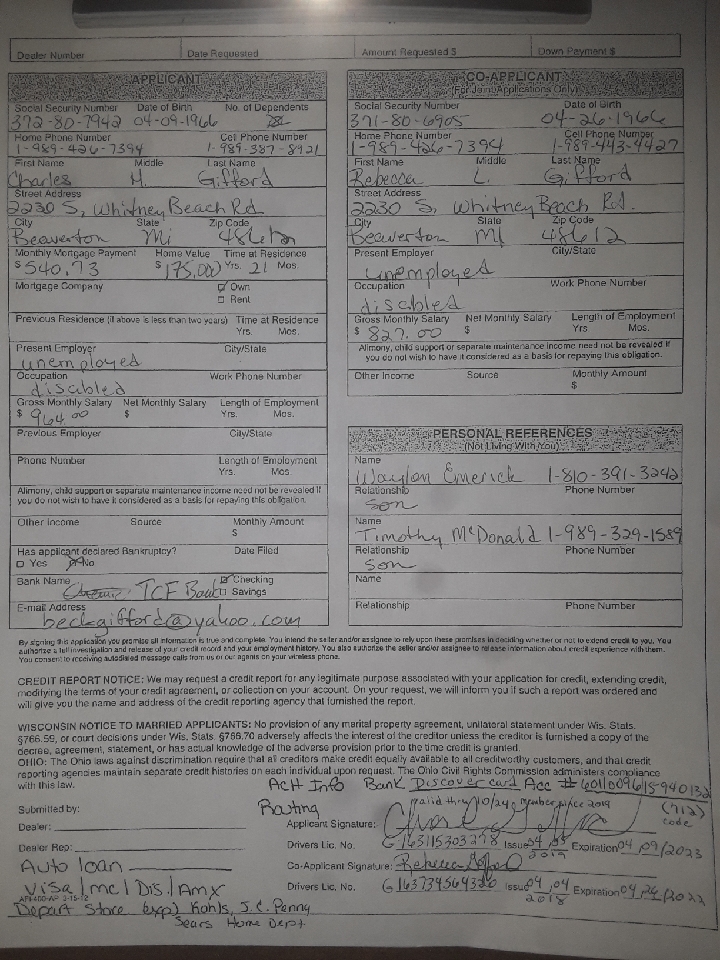 Dealer Number Date Requested Amount Requested $ Down Payment $
APPLICANT
Social Security Number Date of Birth No. of Dependents
[redacted] [redacted]
Home Phone Number Cell Phone Number
[redacted] [redacted]
First Name Middle Last Name
Charles H. Gifford
Street Address
[redacted]
City State Zip Code
Beaverton Mi 48612
Monthly Mortgage Payment Home Value Time at Residence
$ 540.73 $ 175,000 Yrs. 21 Mos.
Mortgage Company Own
Rent
Previous Residence (if above is less than two years) Time at Residence
Yrs. Mos.
Present Employer City/State
unemployed
Occupation Work Phone Number
disabled
Gross Monthly Salary Net Monthly Salary Length of Employment
$ 964.00 $ Yrs. Mos.
Previous Employer City/State
Phone Number Length of Employment
Yrs. Mos.
Alimony, child support or separate maintenance income need not be revealed if
you do not wish to have it considered as a basis for repaying this obligation.
Other Income Source Monthly Amount
$
Has applicant declared Bankruptcy? Date Filed
Yes No
Bank Name TCF Bank Checking
Savings
E-mail Address
[redacted]
CO-APPLICANT
(For Joint Applications Only)
Social Security Number Date of Birth
[redacted] [redacted]
Home Phone Number Cell Phone Number
[redacted] [redacted]
First Name Middle Last Name
Rebecca L. Gifford
Street Address
[redacted]
City State Zip Code
Beaverton MI 48612
Present Employer City/State
unemployed
Occupation Work Phone Number
disabled
Gross Monthly Salary Net Monthly Salary Length of Employment
$ 827.00 $ Yrs. Mos.
Alimony, child support or separate maintenance income need not be revealed if
you do not wish to have it considered as a basis for repaying this obligation.
Other Income Source Monthly Amount
$
PERSONAL REFERENCES
(Not Living With You)
Name
Waylon Emerick [redacted]
Relationship Phone Number
son
Name
Timothy McDonald [redacted]
Relationship Phone Number
son
Name
Relationship Phone Number
By signing this application you promise all information is true and complete. You intend the seller and/or assignee to rely upon these promises in deciding whether or not to extend credit to you. You
authorize a full investigation and release of your credit record and your employment history. You also authorize the seller and/or assignee to release information about credit experience with them.
You consent to receiving autodialed message calls from us or our agents on your wireless phone.
CREDIT REPORT NOTICE: We may request a credit report for any legitimate purpose associated with your application for credit, extending credit,
modifying the terms of your credit agreement, or collection on your account. On your request, we will inform you if such a report was ordered and
will give you the name and address of the credit reporting agency that furnished the report.
WISCONSIN NOTICE TO MARRIED APPLICANTS: No provision of any marital property agreement, unilateral statement under Wis. Stats.
§766.59, or court decisions under Wis. Stats. §766.70 adversely affects the interest of the creditor unless the creditor is furnished a copy of the
decree, agreement, statement, or has actual knowledge of the adverse provision prior to the time credit is granted.
OHIO: The Ohio laws against discrimination require that all creditors make credit equally available to all creditworthy customers, and that credit
reporting agencies maintain separate credit histories on each individual upon request. The Ohio Civil Rights Commission administers compliance
with this law. ACH Info Bank Discover card Acc # [redacted]
Routing [redacted] member since 2019 [redacted] code
Submitted by:
Dealer: Applicant Signature:
Dealer Rep: Drivers Lic. No. [redacted] Issue [redacted] Expiration [redacted]
Auto loan Co-Applicant Signature:
Visa/mc/Dis/Amx Drivers Lic. No. [redacted] Issue [redacted] Expiration [redacted]
Depart Store exp) Kohls, J.C. Penny
Sears Home Dept